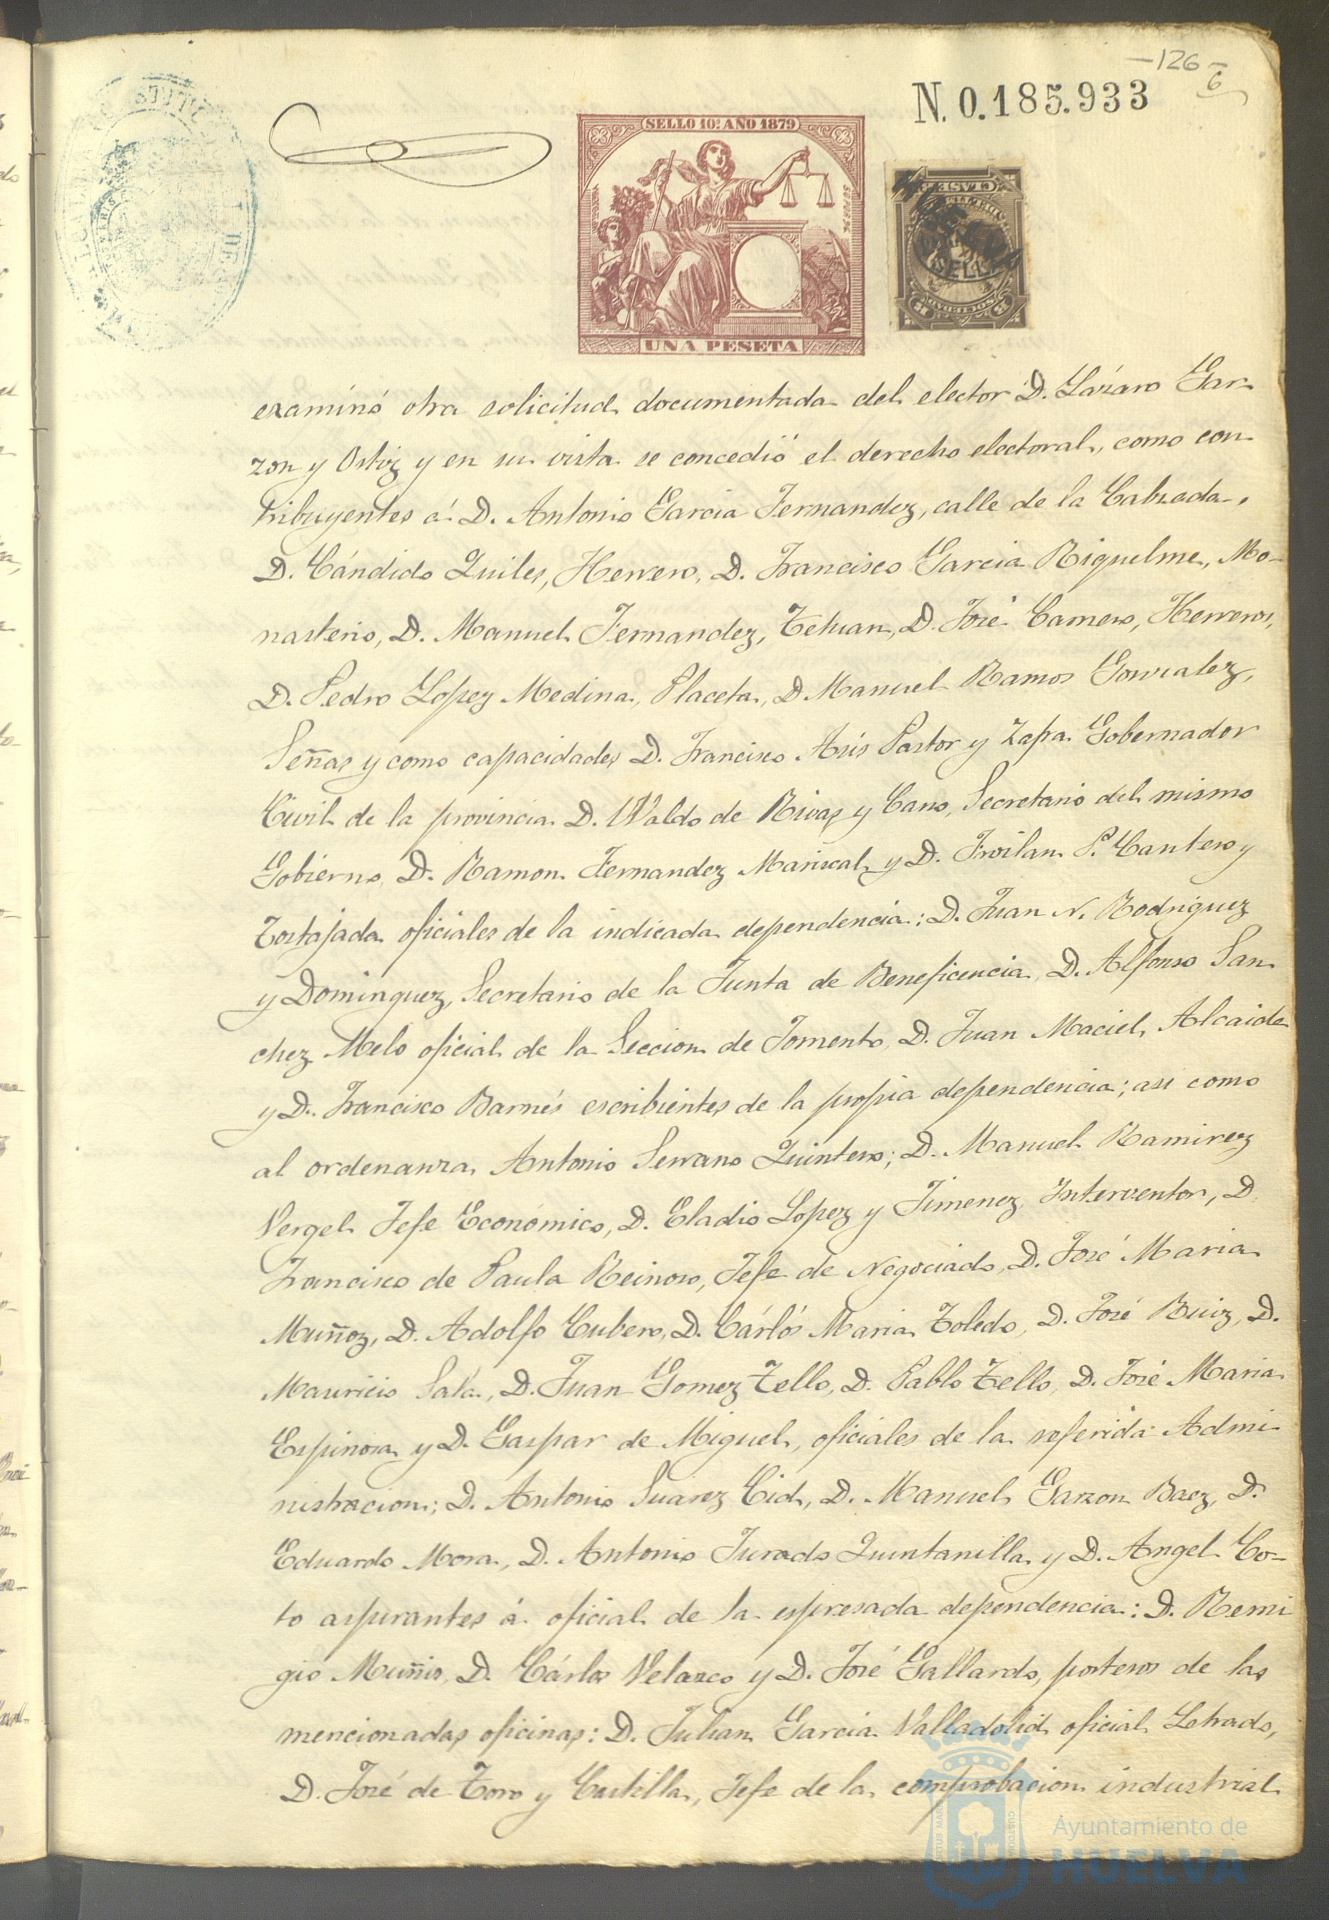 -126-
6
N. 0.185.933
SELLO 10º AÑO 1879
UNA PESETA
examinó otra solicitud documentada del elector D. Lázaro Gar
zon y Ortiz y en su vista se concedió el derecho electoral, como con
tribuyentes á D. Antonio Garcia Fernandez, calle de la Calzada,
D. Cándido Quiles, Herrero, D. Francisco Garcia Riquelme, Mo-
nasterio, D. Manuel Fernandez, Tetuan, D. José Camero, Herreros,
D. Pedro Lopez Medina, Placeta, D. Manuel Ramos Gonzalez,
Señas y como capacidades D. Francisco Asís Pastor y Zapa Gobernador
Civil de la provincia D. Waldo de Rivas y Cano, Secretario del mismo
Gobierno, D. Ramon Fernandez Mariscal y D. Froilan P. Cantero y
Tortajada oficiales de la indicada dependencia: D. Juan N. Rodriguez
y Dominguez, Secretario de la Junta de Beneficencia, D. Alfonso San
chez Melo oficial de la Seccion de Fomento, D. Juan Maciel Alcaide
y D. Francisco Barnés escribientes de la propia dependencia; asi como
al ordenanza Antonio Serrano Quintero; D. Manuel Ramirez
Vergel Jefe Económico, D. Eladio Lopez y Jimenez Interventor, D.
Francisco de Paula Reinoso, Jefe de Negociado, D. José Maria
Muñoz, D. Adolfo Cubero, D. Cárlos Maria Toledo, D. José Ruiz, D.
Mauricio Sala, D. Juan Gomez Tello, D. Pablo Tello, D. José Maria
Espinosa y D. Gaspar de Miguel, oficiales de la referida Admi
nistracion; D. Antonio Suarez Cid, D. Manuel Garzon Baez, D.
Eduardo Mora, D. Antonio Jurado Quintanilla y D. Angel Co-
to aspirantes á oficial de la espresada dependencia: D. Remi
gio Muñiz, D. Cárlos Velazco y D. José Gallardo, porteros de las
mencionadas oficinas: D. Julian Garcia Valladolid oficial Letrado,
D. José de Toro y Castilla, Jefe de la comprobacion industrial
Ayuntamiento de
HUELVA